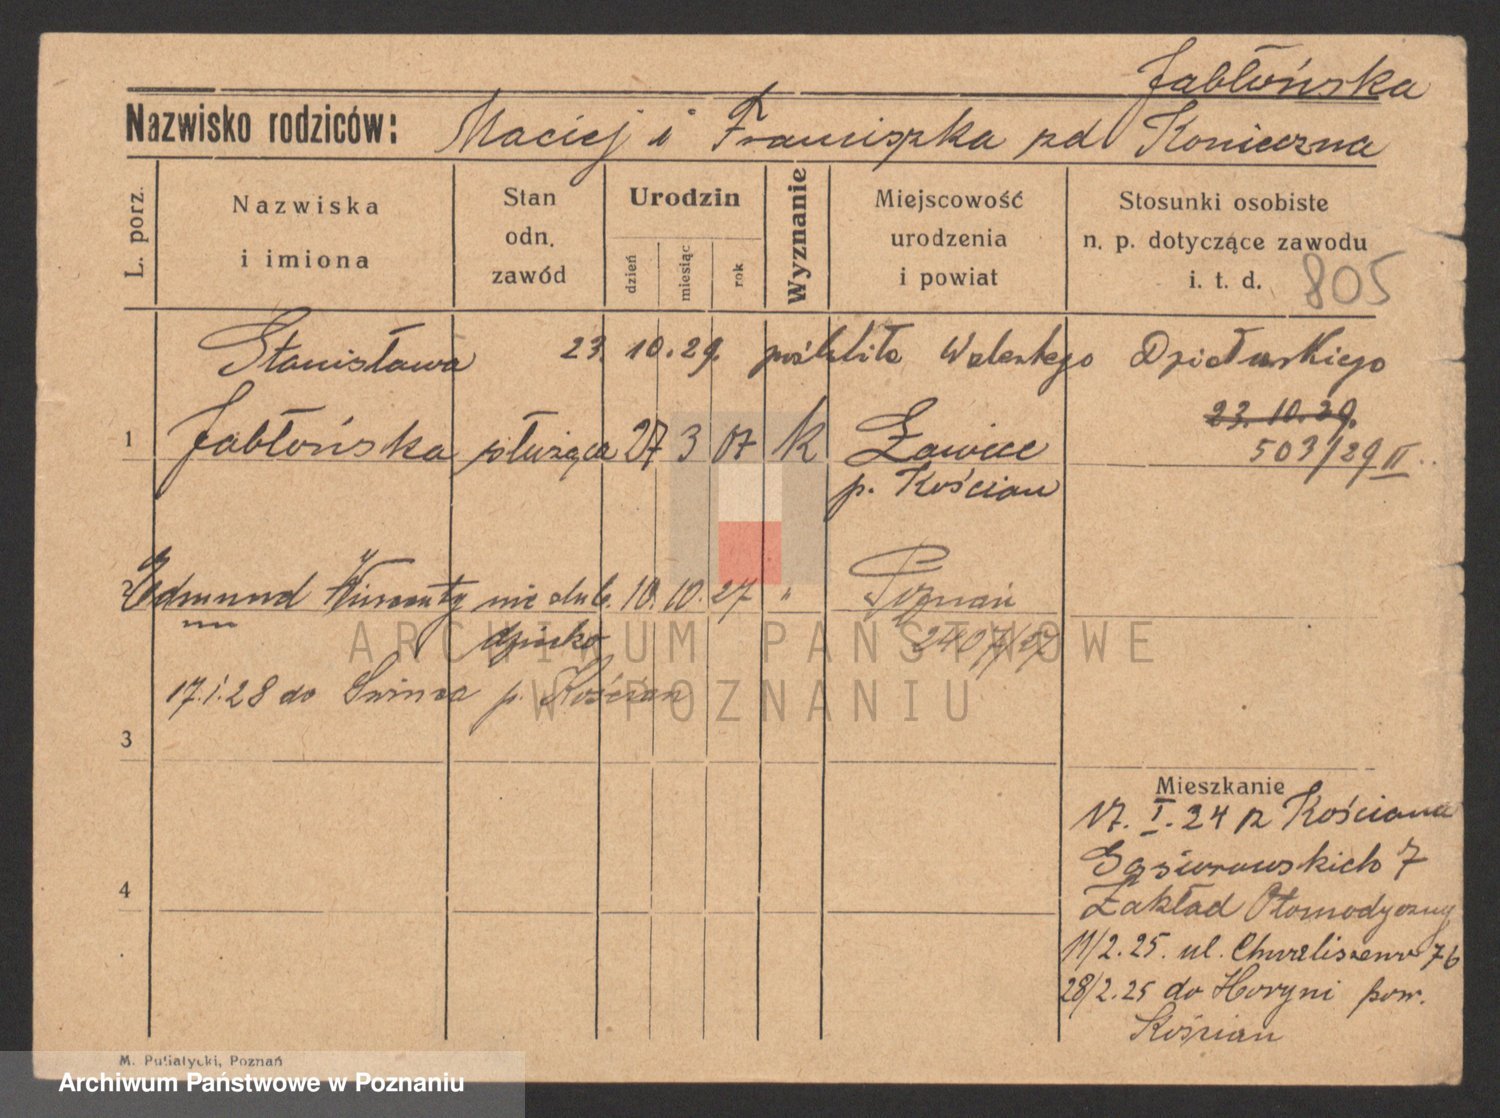 Jabłońska
Nazwisko rodziców: Maciej i Franciszka zd Konieczna
L. porz.
Nazwiska
i imiona
Stan
odn.
zawód
Urodzin
dzień
miesiąc
rok
Wyznanie
Miejscowość
urodzenia
i powiat
Stosunki osobiste
n. p. dotyczące zawodu
i. t. d.
805
Stanisława 23 10.29. poślubiła Walentego
23.10.29.
503/29 II
1 Jabłońska służąca 27 3 07 k Ławice
p. Kościan
2 Edmund Wincenty nieślub. 10. 10. 27 " Poznań
dziecko 2407/27
17.I.28 do p. Kościan
3
4
Mieszkanie
17. I. 24 z Kościana
Gąsiorowskich 7
Zakład
11/2.25. ul. Chwaliszewo 76
28/2.25 do pow.
Kościan
M. Putiatycki, Poznań
ARCHIWUM PAŃSTWOWE
W POZNANIU
Archiwum Państwowe w Poznaniu